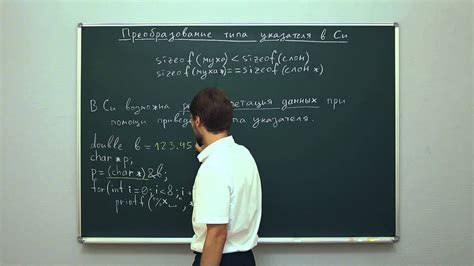 Преобразование типа указателя в Си
sizeof(муха) < sizeof(слон)
sizeof(муха*) == sizeof(слон*)
В Си возможна данных при
помощи указателя.
double b = 123.45
char *p;
p = (char*)&b;
for(int i=0; i<8; i
printf("%x